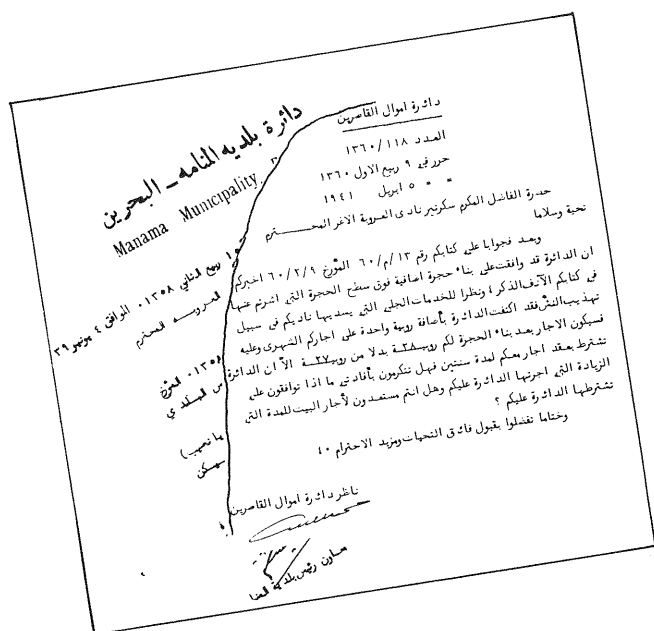 دائرة بلدية المنامه - البحرين
Manama Municipality
ربيع الثاني ١٣٥٨ الموافق ٤ يونيو ٣٩
المحترم
١٣٥٨
دائرة اموال القاصرين
العدد ١١٨/ ١٣٦٠
حرر في ٩ ربيع الاول ١٣٦٠
" " ٥ ابريل ١٩٤١
حضرة الفاضل المكرم سكرتير نادى العروبة الاغر المحـــــترم
تحية وسلاما
وبعد فجوابا على كتابكم رقم ١٣/م/٦٠ المؤرخ ٦٠/٢/٩ اخبركم
ان الدائرة قد وافقت على بناء حجرة اضافية فوق سطح الحجرة التي اشرتم عنها
في كتابكم الآنف الذكر ونظرا للخدمات الجلى التي يسديها ناديكم في سبيل
تهذيب النشء فقد اكتفت الدائرة بأضافة روبية واحدة على اجاركم الشهرى وعليه
فسيكون الاجار بعد بناء الحجرة لكم روبية ٢٨ بدلا من روبية ٢٧ الا ان الدائرة
تشترط بعقد اجار معكم لمدة سنتين فهل تتكرمون بأفادتي ما اذا توافقون على
الزيادة التي اجرتها الدائرة عليكم وهل انتم مستعدون لأجار البيت للمدة التي
تشترطها الدائرة عليكم ؟
وختاما تفضلوا بقبول فائق التحيات ومزيد الاحترام ٤٠
ناظر دائرة اموال القاصرين
معاون رئيس بلدية